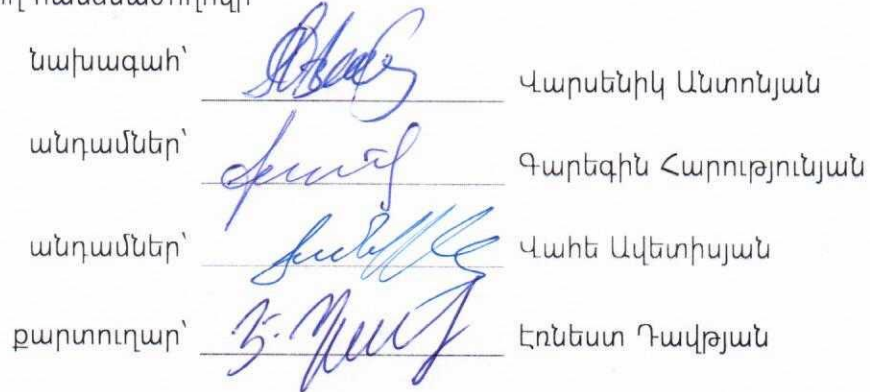 նախագահ՝ Վարսենիկ Անտոնյան
անդամներ՝ Գարեգին Հարությունյան
անդամներ՝ Վահե Ավետիսյան
քարտուղար՝ Էռնեստ Դավթյան